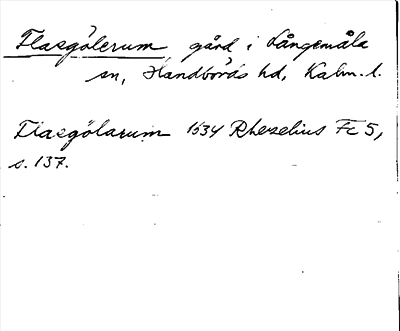 Flasgölerum gård i Långemåla
sn, Handbörds hd, Kalm. l.
Flasgölarum 1634 Rhezelius Fc 5,
s. 137.